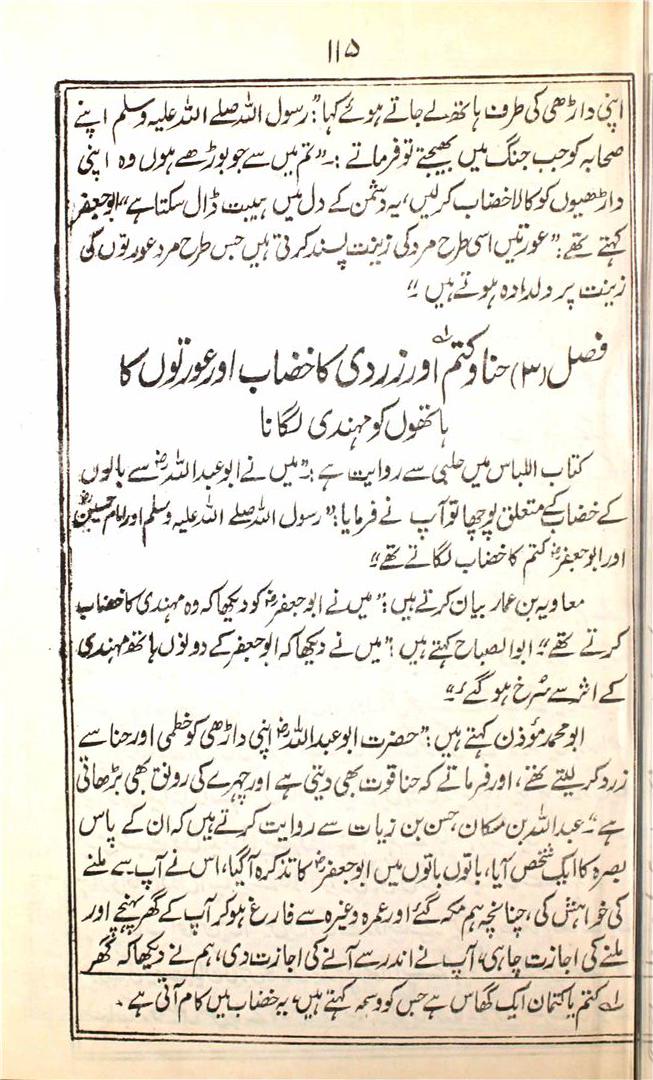 ۱۱۵
اپنی داڑھی کی طرف ہاتھ لے جاتے ہوئے کہا: ”رسول اللہ صلے اللہ علیہ وسلم اپنے
صحابہ کو جب جنگ میں بھیجتے تو فرماتے :۔ ”تم میں سے جو بوڑھے ہوں وہ اپنی
داڑھیوں کو کالا خضاب کر لیں، یہ دشمن کے دل میں ہیبت ڈال سکتا ہے“ ابو جعفر
کہتے تھے: ”عورتیں اسی طرح مرد کی زینت پسند کرتی ہیں جس طرح مرد عورتوں کی
زینت پر دلدادہ ہوتے ہیں۔“
فصل (۳) حنا و کتم ؎۱ اور زردی کا خضاب اور عورتوں کا
ہاتھوں کو مہندی لگانا
کتاب اللباس میں حلبی سے روایت ہے: ”میں نے ابو عبد اللہؓ سے بالوں
کے خضاب کے متعلق پوچھا تو آپ نے فرمایا: ”رسول اللہ صلے اللہ علیہ وسلم اور امام حسینؓ
اور ابو جعفرؓ کتم کا خضاب لگاتے تھے“
معاویہ بن عمار بیان کرتے ہیں: ”میں نے ابو جعفرؓ کو دیکھا کہ وہ مہندی کا خضاب
کرتے تھے“ ابو الصباح کہتے ہیں: ”میں نے دیکھا کہ ابو جعفر کے دونوں ہاتھ مہندی
کے اثر سے سُرخ ہو گئے۔“
ابو محمد مؤذن کہتے ہیں: ”حضرت ابو عبد اللہؓ اپنی داڑھی کو خطمی اور حنا سے
زرد کر لیتے تھے، اور فرماتے کہ حنا قوت بھی دیتی ہے اور چہرے کی رونق بھی بڑھاتی
ہے“۔ عبد اللہ بن مسکان، حسن بن زیات سے روایت کرتے ہیں کہ ان کے پاس
بصرہ کا ایک شخص آیا، باتوں باتوں میں ابو جعفرؓ کا تذکرہ آ گیا، اس نے آپ سے ملنے
کی خواہش کی، چنانچہ ہم مکہ گئے اور عمرہ وغیرہ سے فارغ ہو کر آپ کے گھر پہنچے اور
ملنے کی اجازت چاہی، آپ نے اندر سے آنے کی اجازت دی، ہم نے دیکھا کہ گھر
؎۱ کتم یا کتمان ایک گھاس ہے جس کو وسمہ کہتے ہیں، یہ خضاب میں کام آتی ہے۔